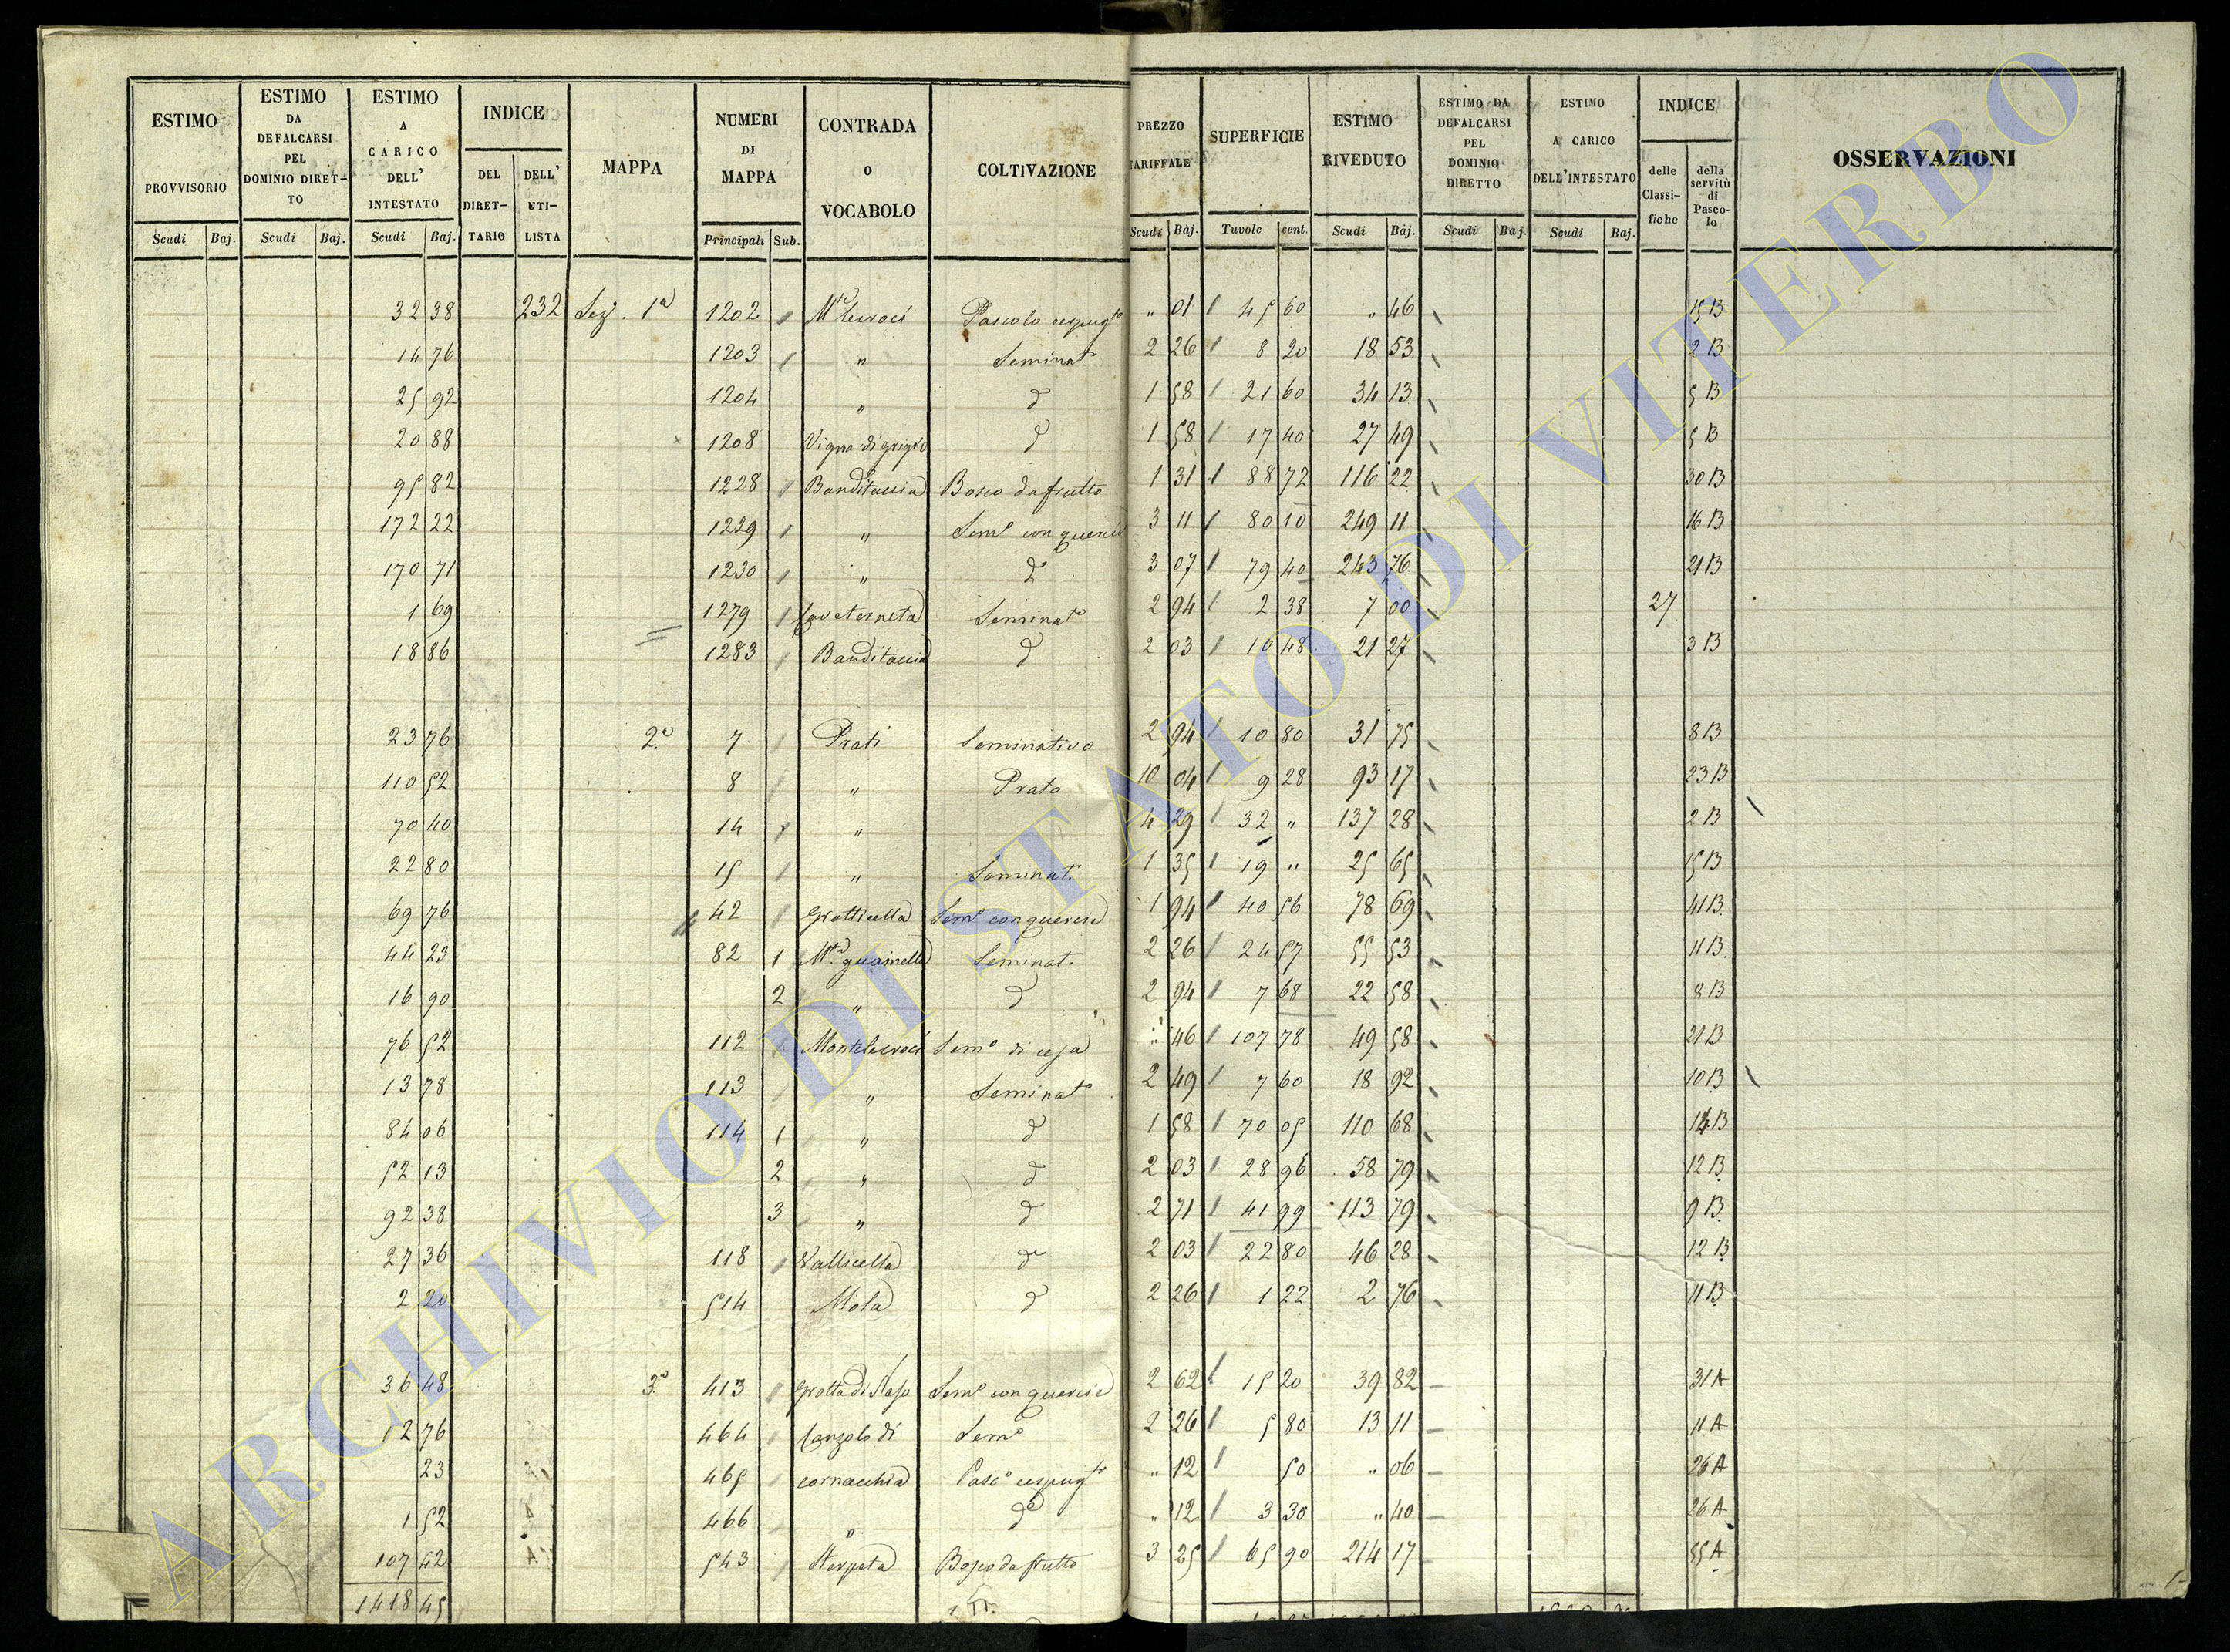 ESTIMO PROVVISORIO Scudi Baj.
ESTIMO DA DEFALCARSI PEL DOMINIO DIRET-TO Scudi Baj.
ESTIMO A CARICO DELL' INTESTATO Scudi Baj.
INDICE DEL DIRET-TARIO DELL' UTI-LISTA
MAPPA
NUMERI DI MAPPA Principali Sub.
CONTRADA o VOCABOLO
COLTIVAZIONE
PREZZO TARIFFALE Scudi Baj.
SUPERFICIE Tavole cent.
ESTIMO RIVEDUTO Scudi Baj.
ESTIMO DA DEFALCARSI PEL DOMINIO DIRETTO Scudi Baj.
ESTIMO A CARICO DELL'INTESTATO Scudi Baj.
INDICE delle Classi-fiche della servitù di Pasco-lo
OSSERVAZIONI
32 38 232 Sez. 1a 1202 Pascolo cespugto " 01 45 60 " 46 15 B
14 76 1203 " Seminat 2 26 8 20 18 53 2 B
25 92 1204 " d 1 58 21 60 34 13 5 B
20 88 1208 Vigna di d 1 58 17 40 27 49 5 B
95 82 1228 Banditaccia Bosco da frutto 1 31 88 72 116 22 30 B
172 22 1229 " Semo con querce 3 11 80 10 249 11 16 B
170 71 1230 " d 3 07 79 40 243 76 21 B
1 69 1279 Seminato 2 94 2 38 7 00 27
18 86 1283 Banditaccia d 2 03 10 48 21 27 3 B
23 76 2a 7 Prati Seminativo 2 94 10 80 31 75 8 B
110 52 8 " Prato 10 04 9 28 93 17 23 B
70 40 14 " 4 29 32 " 137 28 2 B
22 80 15 " Seminat. 1 35 19 " 25 65 15 B
69 76 42 Grotticella Semo con querce 1 94 40 56 78 69 41 B
44 23 82 1 Mte guainella Seminat. 2 26 24 57 55 53 11 B
16 90 2 " d 2 94 7 68 22 58 8 B
76 52 112 Montelecroci Semo di " 46 107 78 49 58 21 B
13 78 113 " Seminato 2 49 7 60 18 92 10 B
84 06 114 1 " d 1 58 70 05 110 68 14 B
52 13 2 " d 2 03 28 96 58 79 12 B
92 38 3 " d 2 71 41 99 113 79 9 B
27 36 118 Vallicella do 2 03 22 80 46 28 12 B
2 20 514 Mola d 2 26 1 22 2 76 11 B
36 48 3a 413 Grotta di Semo con querce 2 62 15 20 39 82 31 A
12 76 464 di Semo 2 26 5 80 13 11 11 A
23 465 cornacchia Paso cespugto " 12 50 " 06 26 A
1 52 466 " do " 12 3 30 " 40 26 A
107 42 543 Sterpeta Bosco da frutto 3 25 65 90 214 17 55 A
1418 45
ARCHIVIO DI STATO DI VITERBO